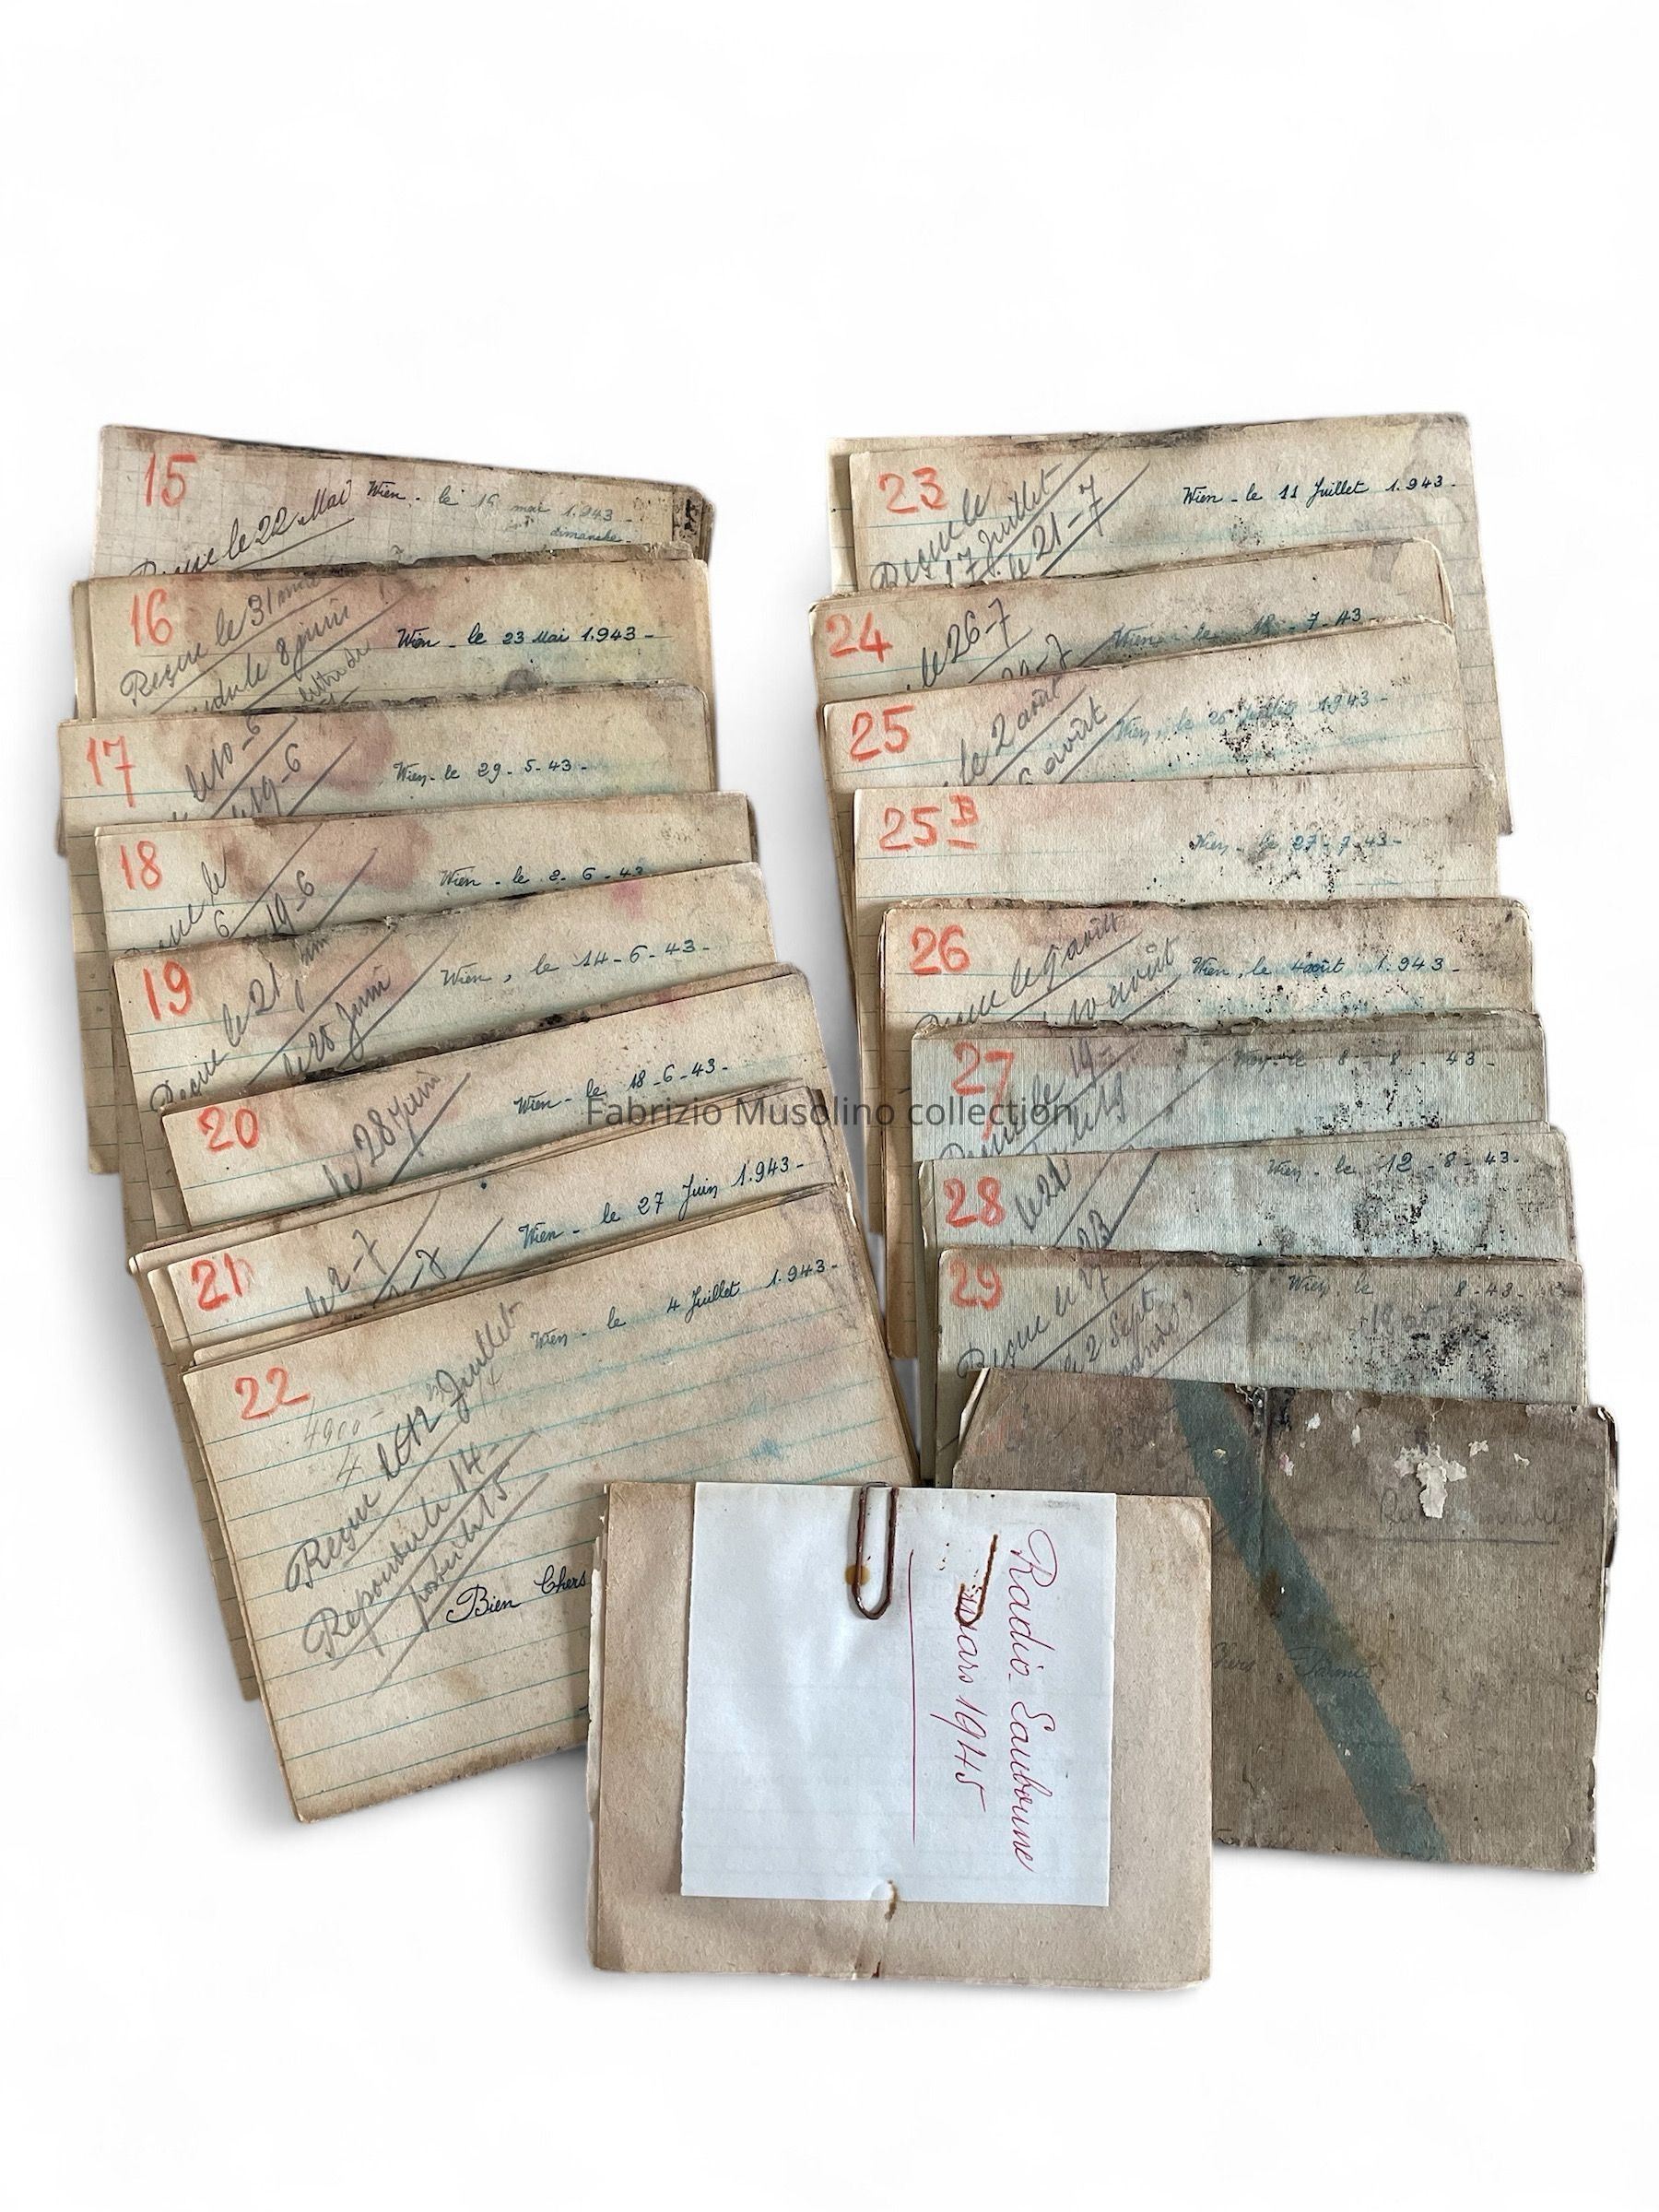 15
Wien - le 16 mai 1.943 -
dimanche -
Reçue le 22 Mai
16
Reçue le 31 mai
le 8 juin
Wien - le 23 Mai 1.943 -
17
le 10-6
19-6
Wien - le 29 - 5 - 43 -
18
le
6
19-6
Wien - le 2 - 6 - 43
19
Reçue le 21 juin
le 25 Juin
Wien, le 14 - 6 - 43 -
20
le 28 juin
Wien - le 18 - 6 - 43 -
21
le 2-7
Wien - le 27 Juin 1.943 -
22
Wien - le 4 Juillet 1.943 -
4900-
4
Reçue le 12 Juillet
Repondu le 14
posté le 15
Bien Chers
23
Reçue le
17 Juillet
le 21-7
Wien - le 11 Juillet 1.943 -
24
le 26-7
Wien - le 18 - 7 - 43 -
25
le 2 août
août
Wien, le 25 Juillet 1943 -
25 B
Wien - le 27 - 7 - 43 -
26
Reçue le 9 août
10 août
Wien, le 4 août 1.943 -
27
le 19 -
le 19
Wien - le 8 - 8 - 43 -
28
le 21
23
Wien - le 12 - 8 - 43 -
29
Reçue le 27
le 2 Sept
Wien, le 18 - 8 - 43 -
Chers
Radio Eaubonne
mars 1945
Fabrizio Musolino collection